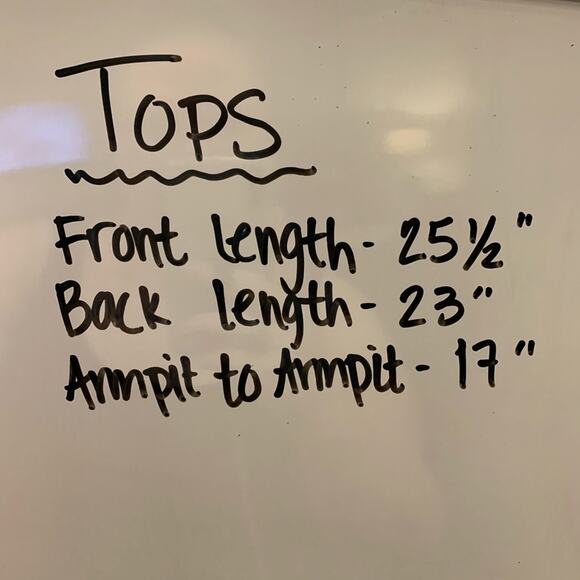 TOPS
Front length - 25½"
Back length - 23"
Armpit to Armpit - 17"